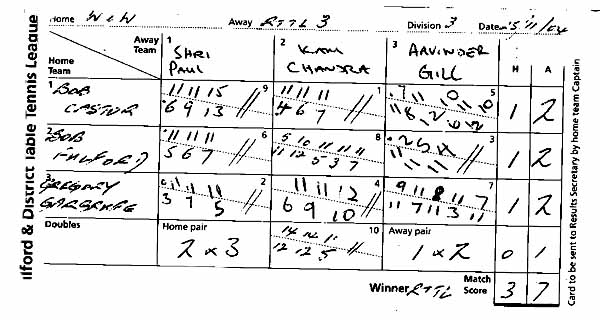 Ilford & District Table Tennis League
Home W & W Away RTTL 3 Division 3 Date 15/11/04
Away Team 1 SHRI PAUL 2 KAM CHANDRA 3 ARVINDER GILL H A
Home Team
1 BOB CASTOR 9 11 11 15 // 1 11 11 11 // 5 7 11 10 10 1 2
6 9 13 4 6 7 11 6 12 12
2 BOB FULFORD 6 11 11 11 // 8 5 10 11 11 11 3 2 5 4 1 2
5 6 7 11 12 5 3 7 11 11 11 //
3 GREGORY 2 11 11 11 4 11 11 12 // 7 9 11 8 11 7 1 2
3 7 5 // 6 9 10 11 7 11 3 11
Doubles Home pair 10 14 12 11 // Away pair
2 x 3 12 12 5 1 x 2 0 1
Winner RTTL Match Score 3 7
Card to be sent to Results Secretary by home team Captain